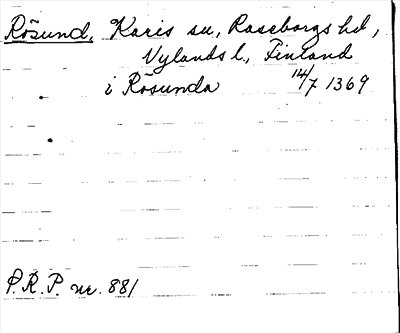 Rösund, Karis sn, Raseborgs hd,
Nylands l., Finland
i Rõsunda 14/7 1369
P.R.P. nr. 881